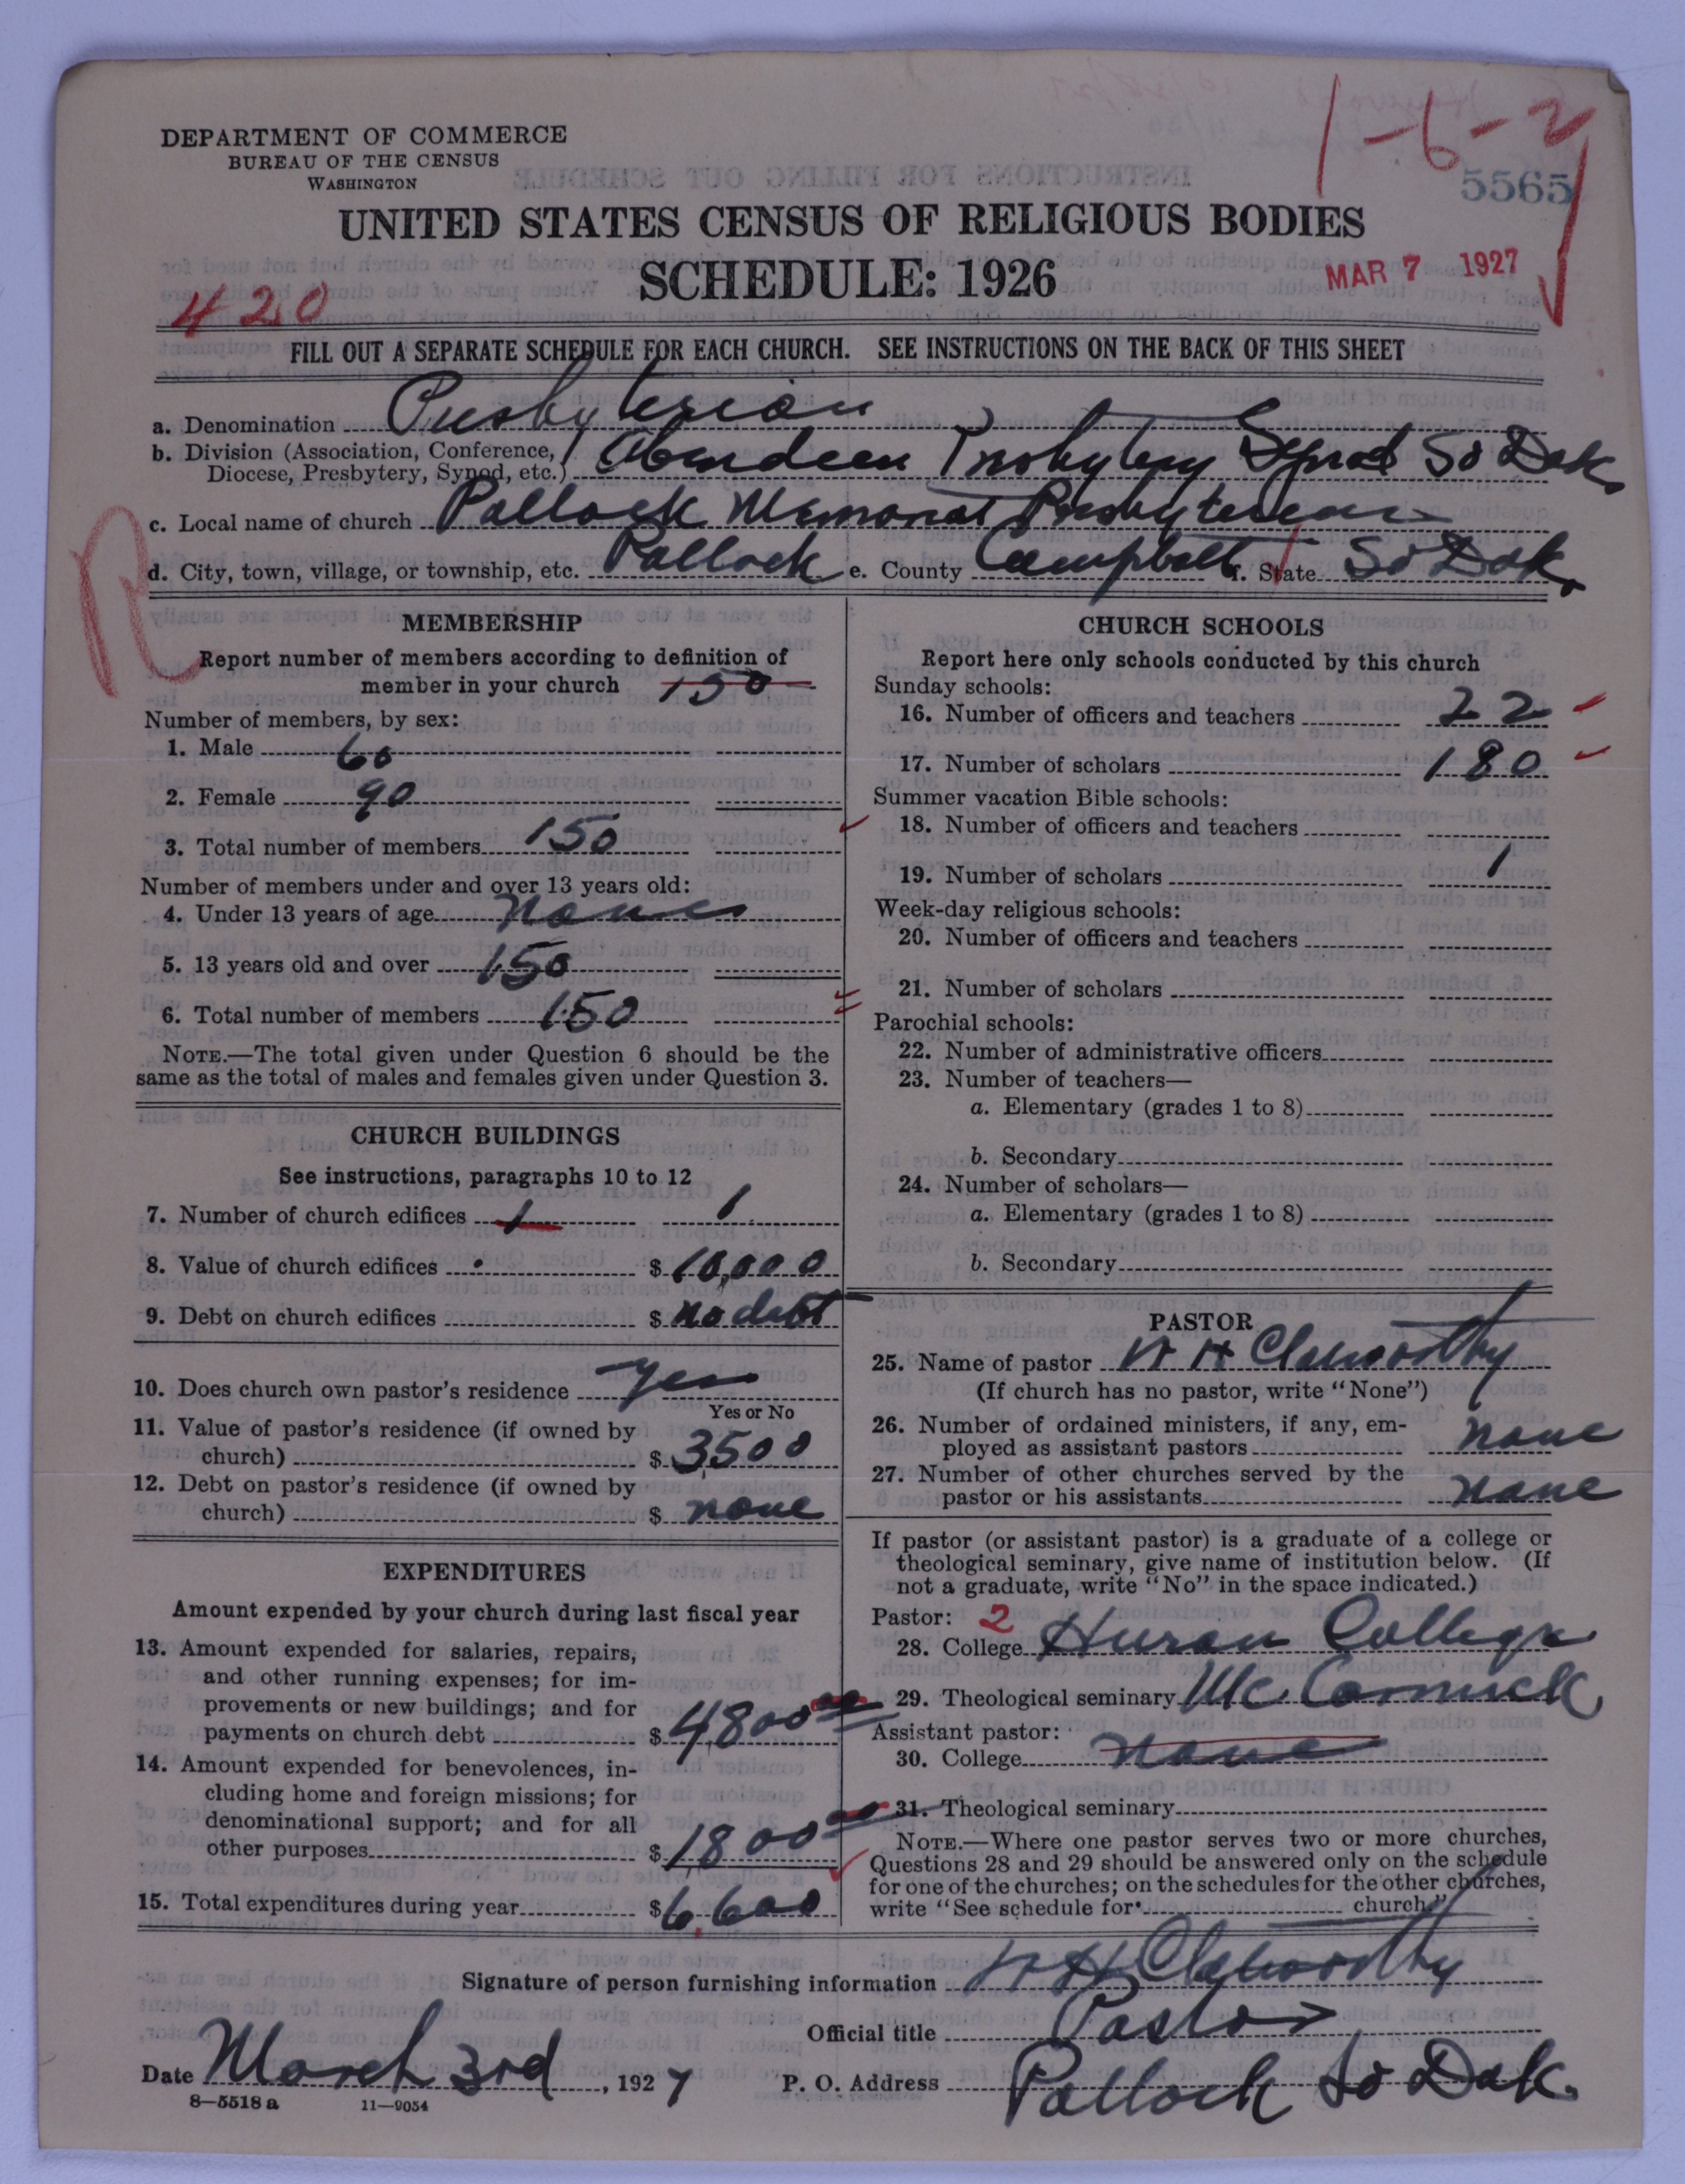 1-6-2
DEPARTMENT OF COMMERCE
BUREAU OF THE CENSUS
WASHINGTON
5565
UNITED STATES CENSUS OF RELIGIOUS BODIES
SCHEDULE: 1926
MAR 7 1927
420
FILL OUT A SEPARATE SCHEDULE FOR EACH CHURCH. SEE INSTRUCTIONS ON THE BACK OF THIS SHEET
a. Denomination Presbyterian
b. Division (Association, Conference, Diocese, Presbytery, Synod, etc.) Aberdeen Presbytery Synod So Dak
c. Local name of church Pollock Memorial Presbyterian
d. City, town, village, or township, etc. Pollock e. County Campbell f. State So Dak.
R
MEMBERSHIP
Report number of members according to definition of
member in your church 150
Number of members, by sex:
1. Male 60
2. Female 90
3. Total number of members 150
Number of members under and over 13 years old:
4. Under 13 years of age None
5. 13 years old and over 150
6. Total number of members 150
NOTE.—The total given under Question 6 should be the
same as the total of males and females given under Question 3.
CHURCH BUILDINGS
See instructions, paragraphs 10 to 12
7. Number of church edifices 1 1
8. Value of church edifices $ 10,000
9. Debt on church edifices $ no debt
10. Does church own pastor's residence Yes
Yes or No
11. Value of pastor's residence (if owned by
church) $ 3500
12. Debt on pastor's residence (if owned by
church) $ none
EXPENDITURES
Amount expended by your church during last fiscal year
13. Amount expended for salaries, repairs,
and other running expenses; for im-
provements or new buildings; and for
payments on church debt $ 4800 00
14. Amount expended for benevolences, in-
cluding home and foreign missions; for
denominational support; and for all
other purposes $ 1800 00
15. Total expenditures during year $ 6,600
CHURCH SCHOOLS
Report here only schools conducted by this church
Sunday schools:
16. Number of officers and teachers 22
17. Number of scholars 180
Summer vacation Bible schools:
18. Number of officers and teachers
19. Number of scholars 1
Week-day religious schools:
20. Number of officers and teachers
21. Number of scholars
Parochial schools:
22. Number of administrative officers
23. Number of teachers—
a. Elementary (grades 1 to 8)
b. Secondary
24. Number of scholars—
a. Elementary (grades 1 to 8)
b. Secondary
PASTOR
25. Name of pastor W H Clatworthy
(If church has no pastor, write "None")
26. Number of ordained ministers, if any, em-
ployed as assistant pastors none
27. Number of other churches served by the
pastor or his assistants none
If pastor (or assistant pastor) is a graduate of a college or
theological seminary, give name of institution below. (If
not a graduate, write "No" in the space indicated.)
Pastor: 2
28. College Huron College
29. Theological seminary McCormick
Assistant pastor:
30. College none
31. Theological seminary
NOTE.—Where one pastor serves two or more churches,
Questions 28 and 29 should be answered only on the schedule
for one of the churches; on the schedules for the other churches,
write "See schedule for church."
Signature of person furnishing information W H Clatworthy
Official title Pastor
Date March 3rd, 1927 P. O. Address Pollock So Dak.
8—5518 a 11—9054